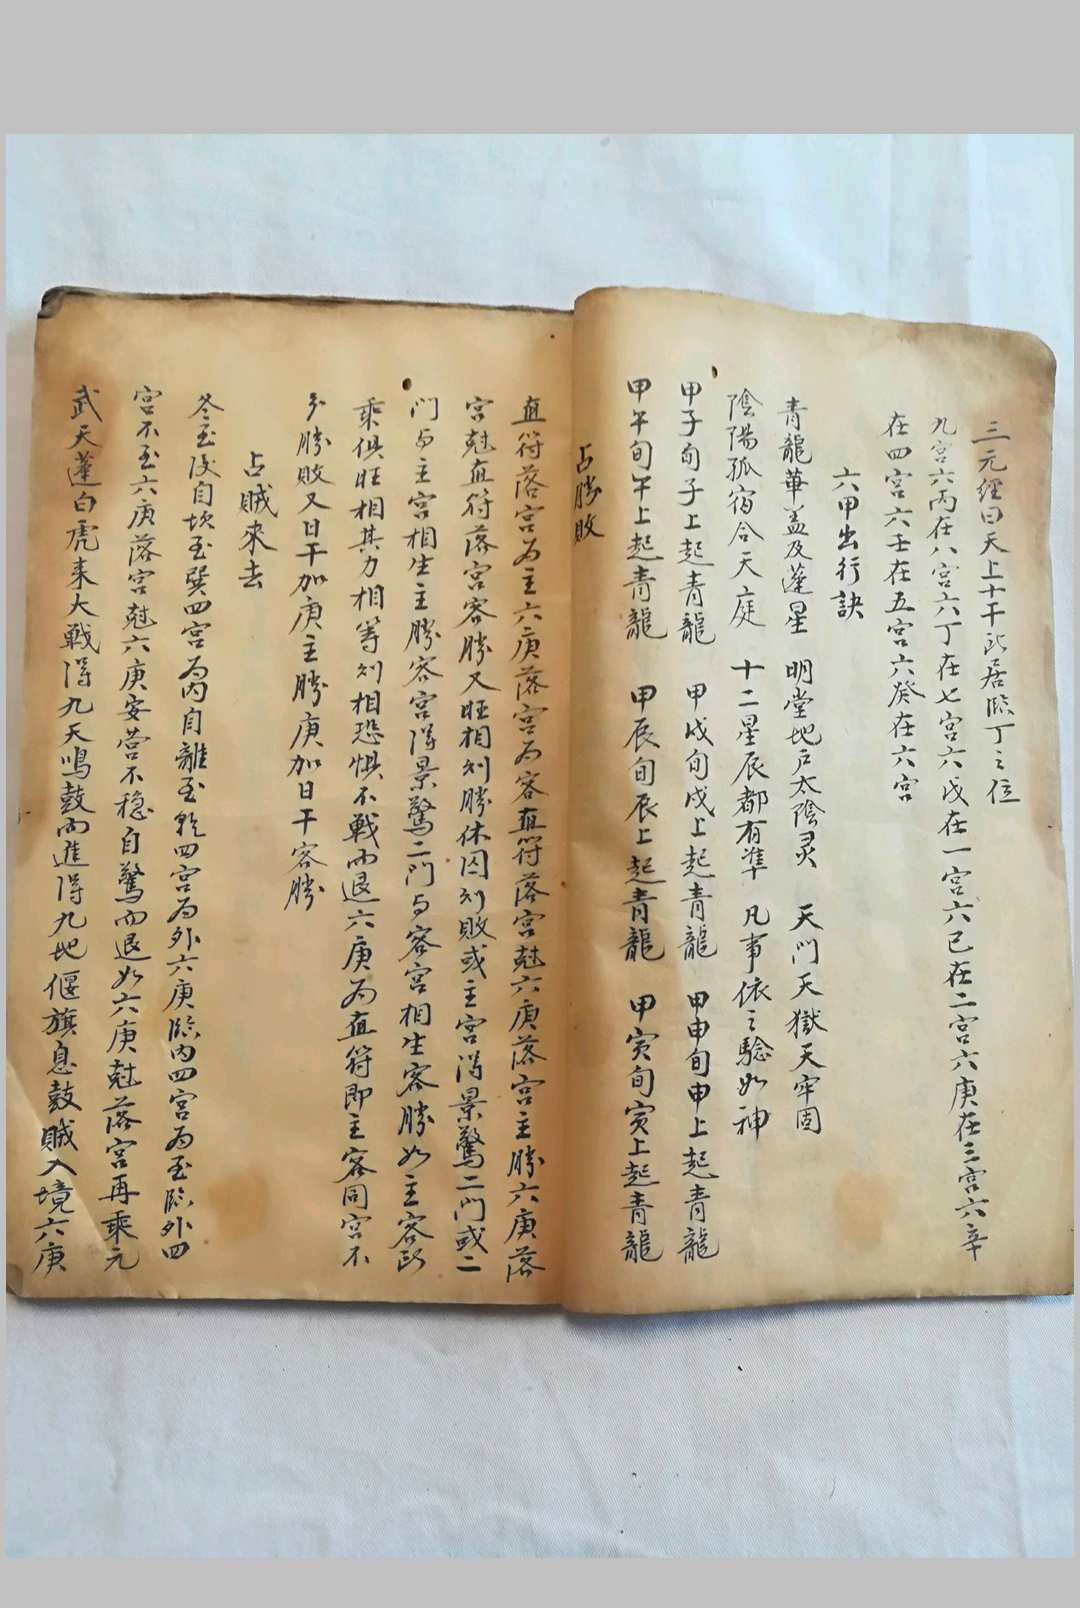 三元經曰天上十干所居臨丁之位
九宮六丙在八宮六丁在七宮六戊在一宮六己在二宮六庚在三宮六辛
在四宮六壬在五宮六癸在六宮
六甲出行訣
青龍華盖及蓬星 明堂地戶太陰灵 天門天獄天牢固
陰陽孤宿合天庭 十二星辰都有準 凡事依之驗如神
甲子旬子上起青龍 甲戌旬戌上起青龍 甲申旬申上起青龍
甲午旬午上起青龍 甲辰旬辰上起青龍 甲寅旬寅上起青龍
占勝敗
直符落宮为主六庚落宮为客直符落宮尅六庚落宮主勝六庚落
宮尅直符落宮客勝又旺相刘勝休囚刘敗或主宮得景驚二門或二
門与主宮相生主勝客宮得景驚二門与客宮相生客勝如主客所
乘俱旺相其力相等刘相恐惧不戰而退六庚为直符即主客同宮不
分勝敗又日干加庚主勝庚加日干客勝
占賊來去
冬至後自坎至巽四宮为内自離至乾四宮为外六庚臨内四宮为至臨外四
宮不至六庚落宮尅六庚安营不稳自驚而退如六庚尅落宮再乘元
武天蓬白虎来大戰得九天鳴鼓而進得九地偃旗息鼓賊入境六庚